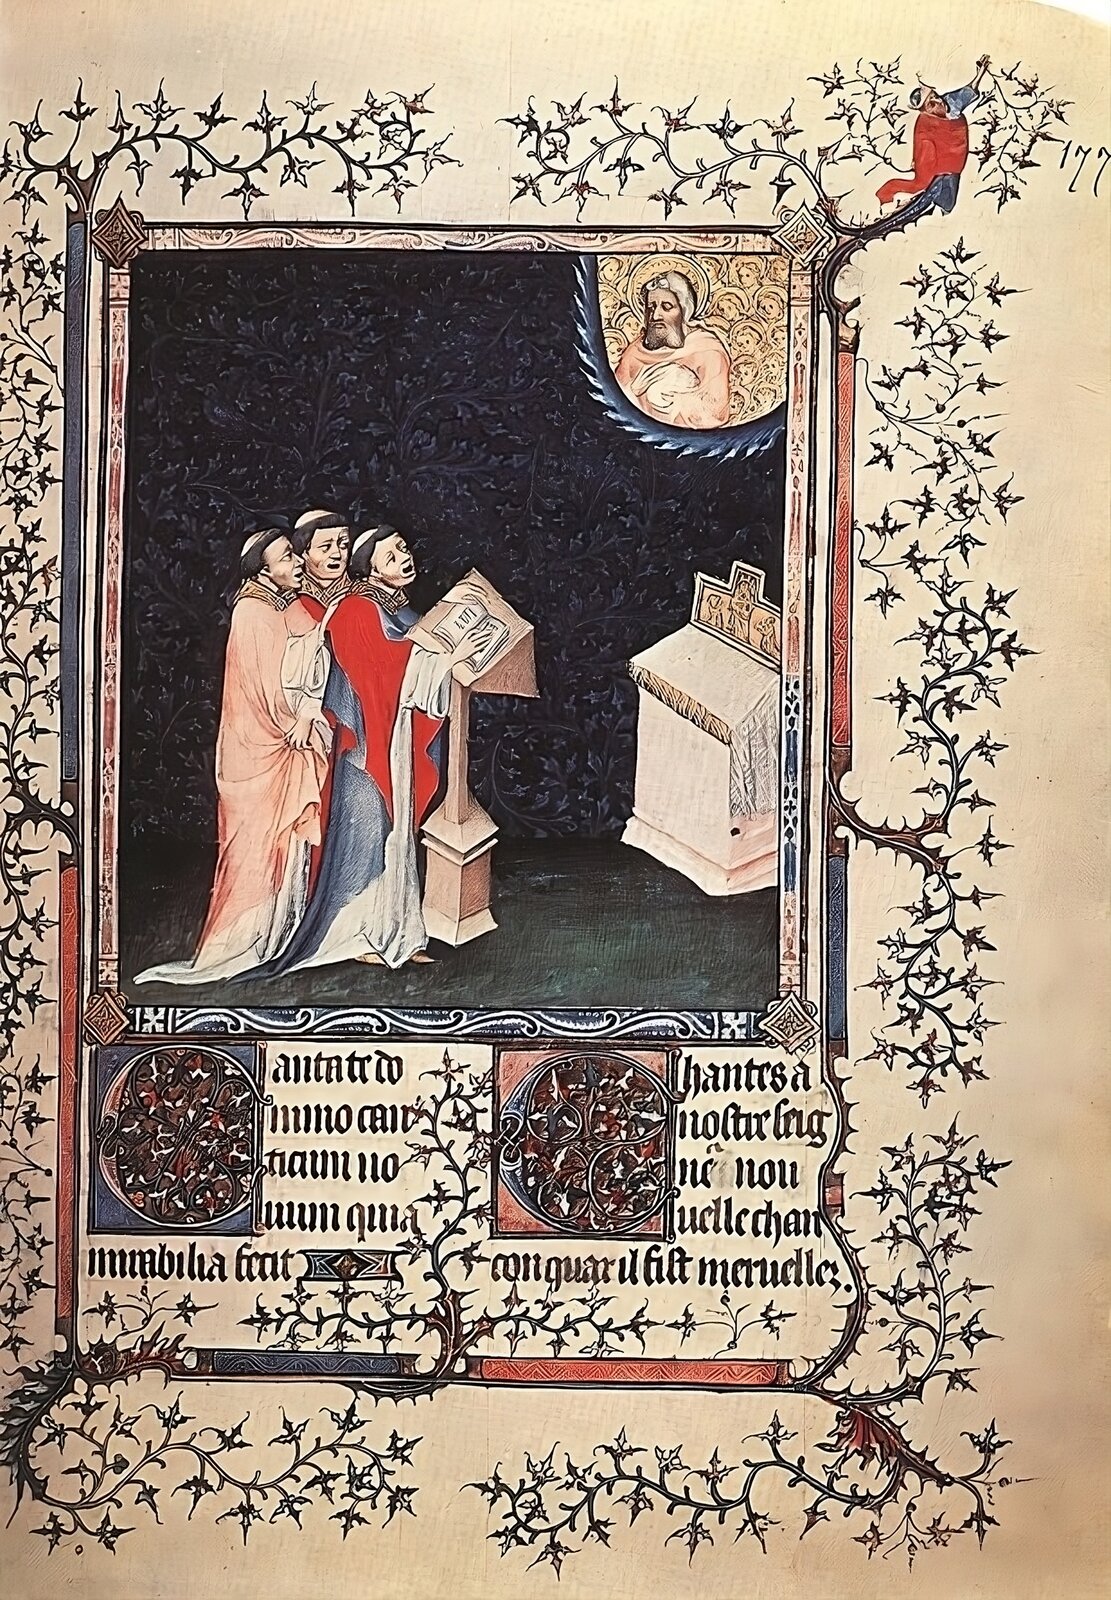 177
antate do
mino can
ticum no
uum quia
mirabilia fecit
hantes a
nostre seig
nē nou
uelle chan
con quar il fist merueilles.